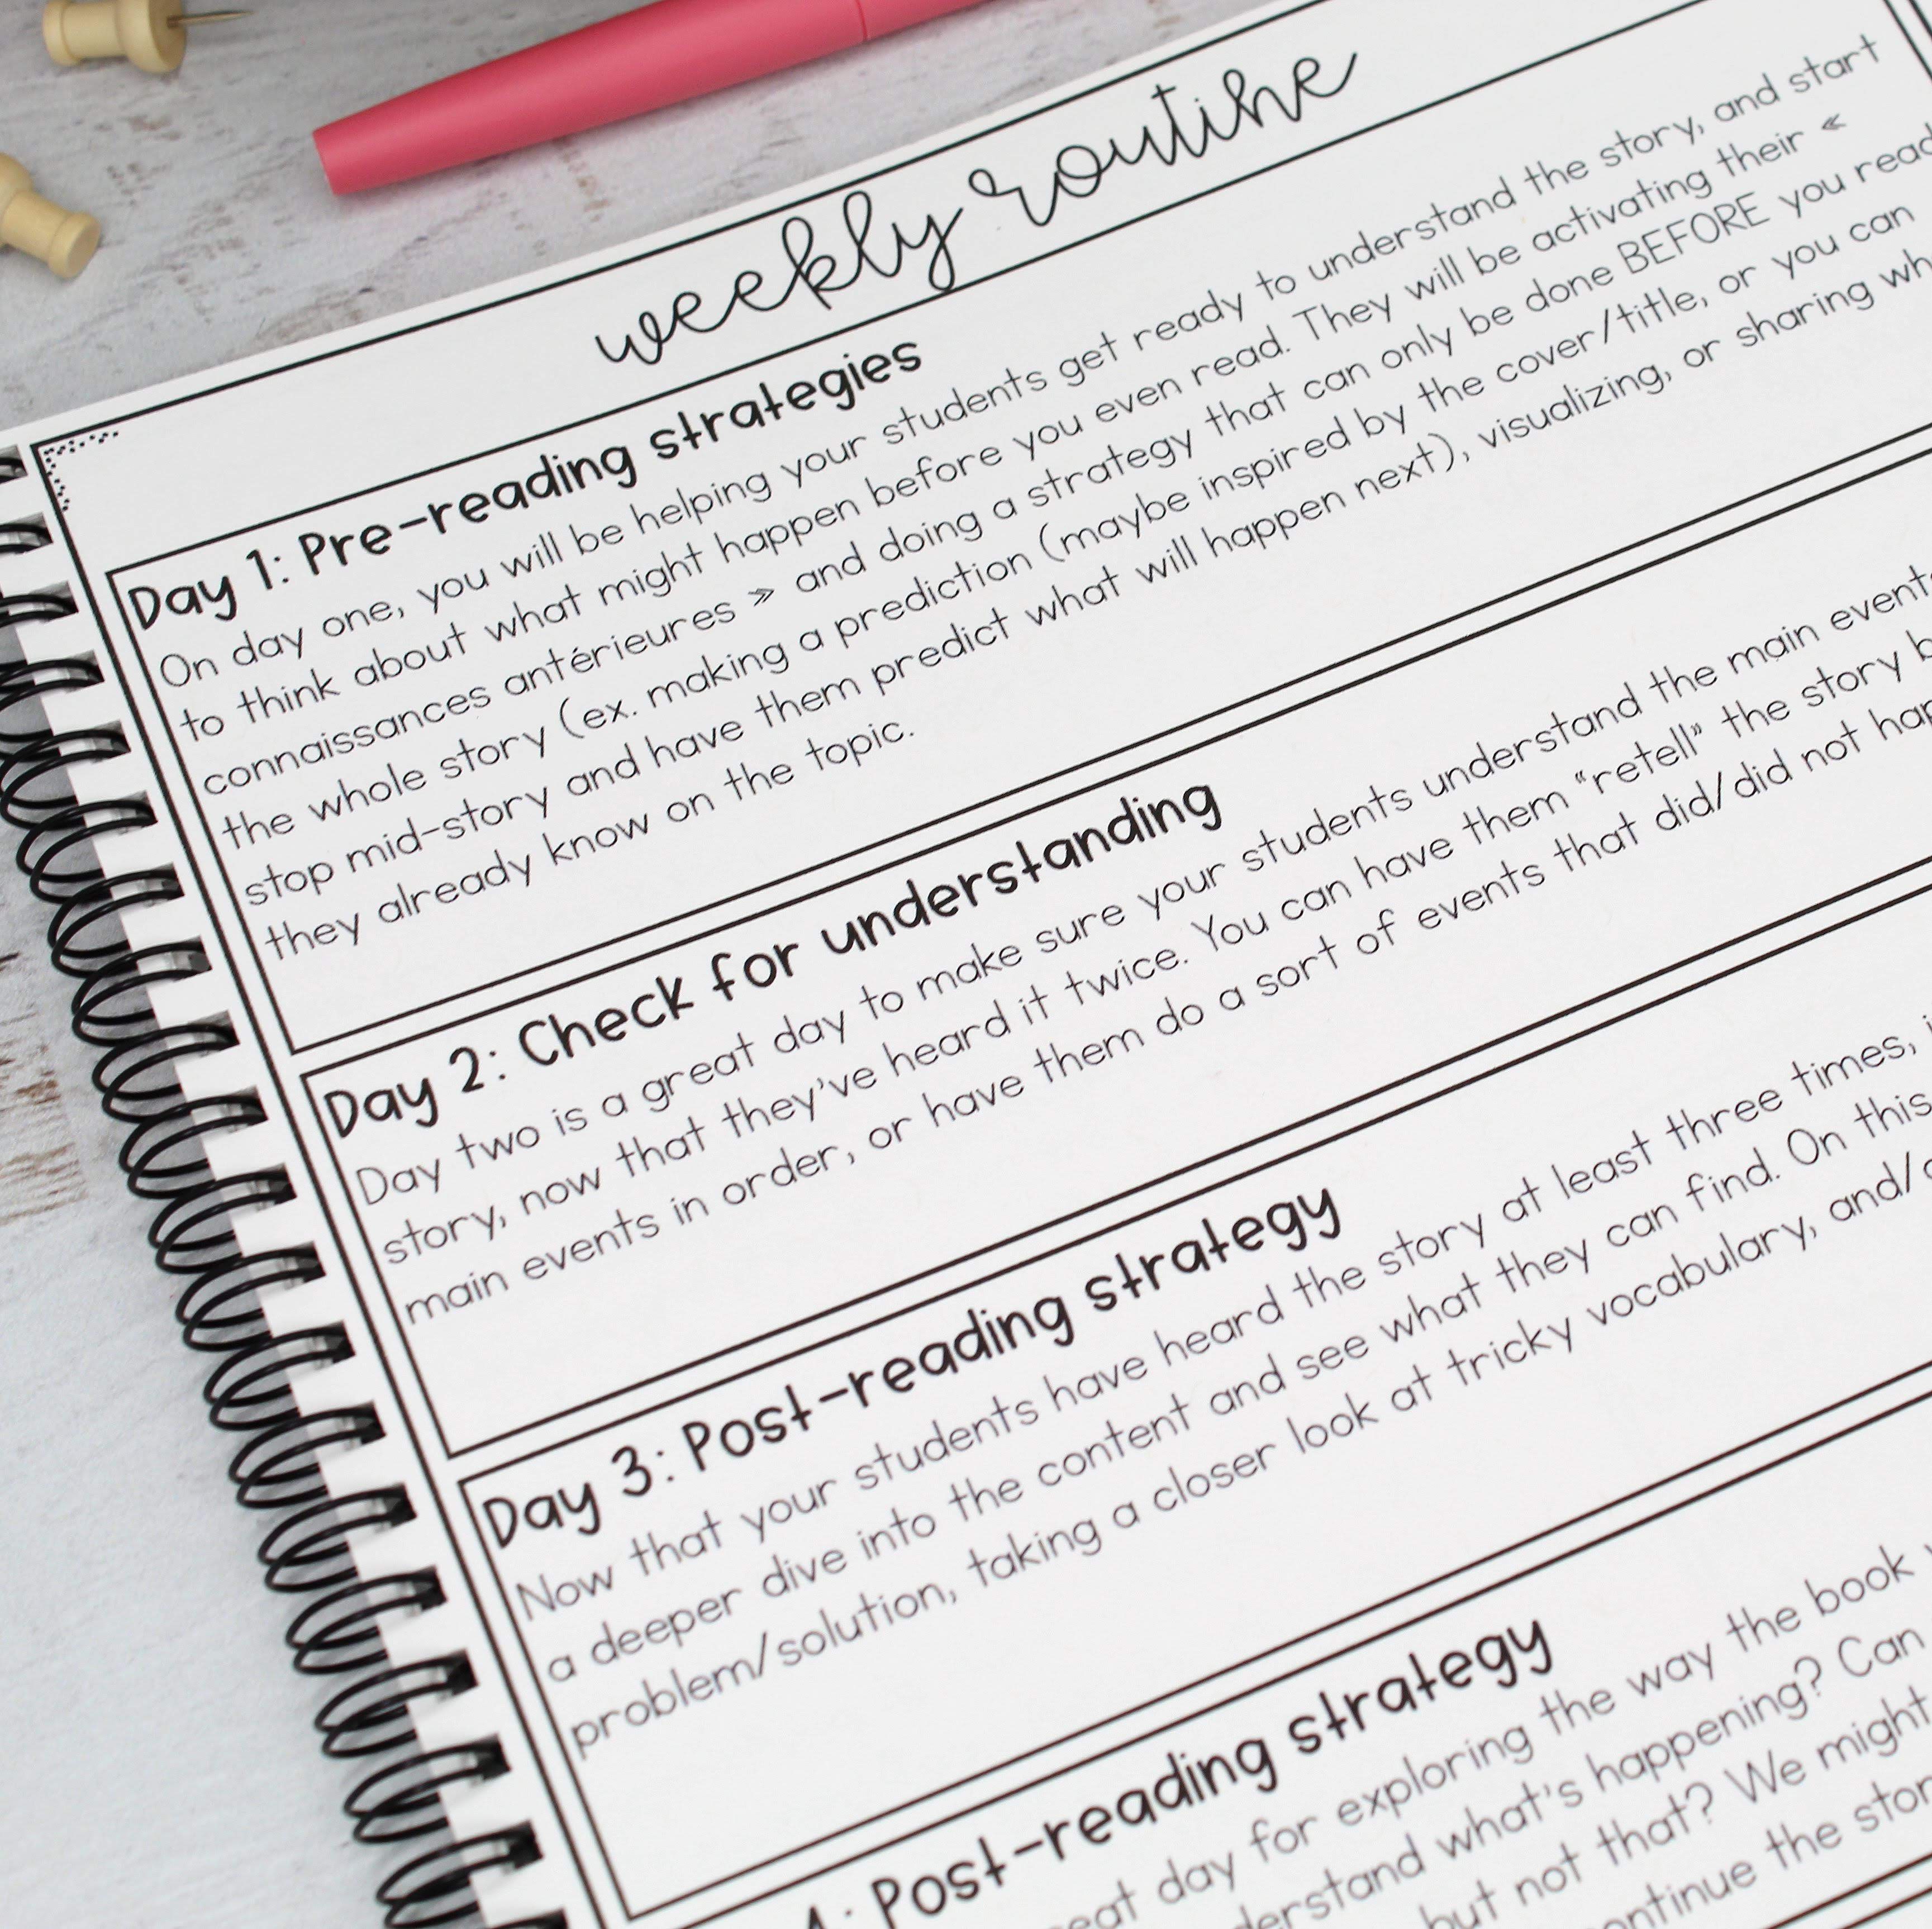 weekly routine
Day 1: Pre-reading strategies
On day one, you will be helping your students get ready to understand the story, and start
to think about what might happen before you even read. They will be activating their «
connaissances antérieures » and doing a strategy that can only be done BEFORE you read
the whole story (ex. making a prediction (maybe inspired by the cover/title, or you can
stop mid-story and have them predict what will happen next), visualizing, or sharing
they already know on the topic.
Day 2: Check for understanding
Day two is a great day to make sure your students understand the main
story, now that they've heard it twice. You can have them "retell" the story
main events in order, or have them do a sort of events that did/did not
Day 3: Post-reading strategy
Now that your students have heard the story at least three times,
a deeper dive into the content and see what they can find. On this
problem/solution, taking a closer look at tricky vocabulary,
Post-reading strategy
day for exploring the way the book
what's happening? Can
but not that? We might
the